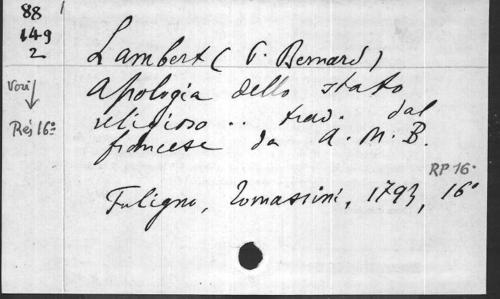 88
149
2
Lambert (P. Bernard)
Apologia dello stato
religioso .. trad. dal
francese da A. M. B.
Vori
Rés 16°
RP 16°
Fuligno, Tomassini, 1793, 16°